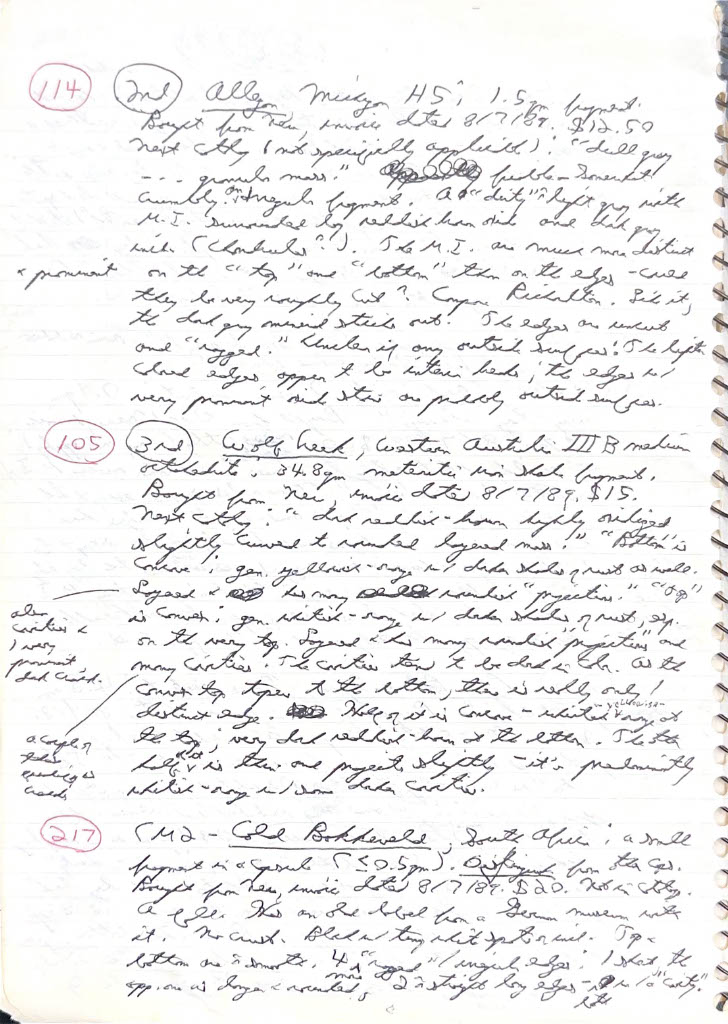 114 2nd Allegan, Michigan H5; 1.5gm fragment.
Bought from New, invoice dated 8/7/89. $12.50
Next catlog (not specifically applicable): "dull gray
--- granular mass." friable - somewhat
crumbly irregular fragment. A "dirty" light gray with
M.I. surrounded by reddish-brown oxid and dark gray
incl. (Chondrules?). The M.I. are much more distinct
& prominent on the "top" and "bottom" than on the edges - could
they be very roughly cut? Compare Richardton. Like it,
the dark gray mineral sticks out. The edges are uncut
and "rugged." Unclear if any outside surfaces. The light
colored edges appear to be interior breaks; the edges w/
very prominent oxid stain are probably outside surfaces.
105 3rd Wolf Creek, Western Australia IIIB medium
octahedrite. 34.8gm meteoritic iron shale fragment.
Bought from New, invoice dated 8/7/89. $15.
Next catlog: "dark reddish-brown highly oxidized
slightly curved to rounded layered mass." "Bottom" is
concave; gen. yellowish-orange w/ darker shades of rust as well.
Layered & has many roundish "projections." "Top"
is convex; gen. whitish-orange w/ darker shades of rust, esp.
on the very top. Layered & has many roundish "projections" and
many cavities. The cavities tend to be dark in color. As the
convex top tapers to the bottom, there is really only 1
distinct edge. Half of it is concave - whitish-orange at
the top; very dark reddish-brown at the bottom. The other
half is thin and projects slightly - it's predominantly
whitish-orange w/ some darker cavities.
also
cavities &
1 very
prominent,
dark crack.
a couple of
these
cracks
217 CM2 - Cold Bokkeveld, South Africa; a small
fragment in a capsule (≤0.5gm). from the cap.
Bought from New, invoice dated 8/7/89. $20. Not in catlog.
A fall. Has an old label from a German museum with
it. No crust. Black w/ tiny white spots or incl. Top &
bottom are smooth. 4 "rugged" / irregular edges: 1 short, the
opp. one is longer & more rounded, 2 straight long edges - 1 w/ a "cavity."